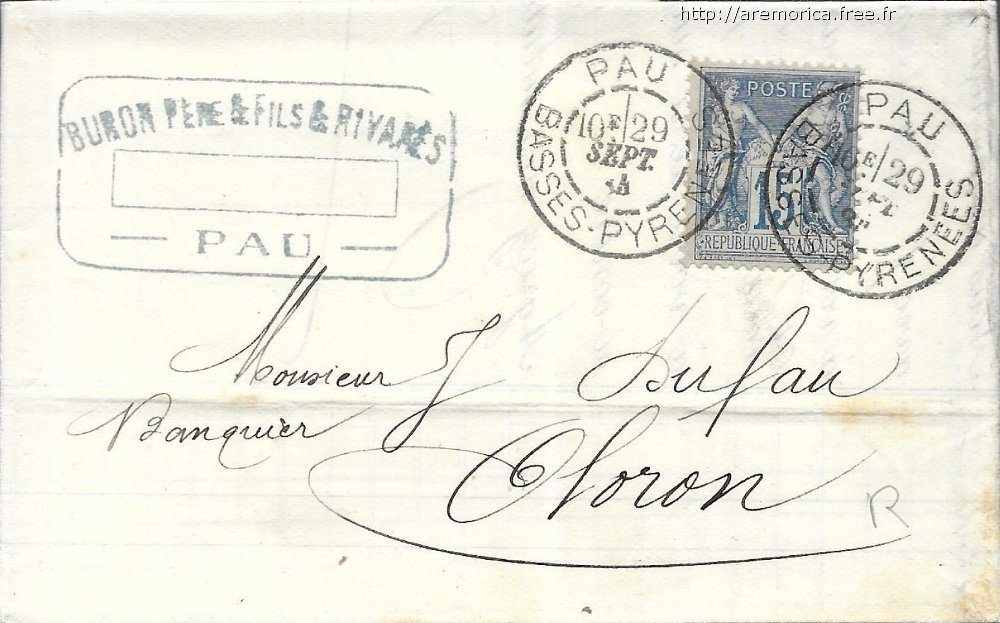 http://aremorica.free.fr
BURON PÈRE & FILS & RIVARÈS
PAU
PAU
10E 29
SEPT.
BASSES-PYRENEES
POSTE
15
RÉPUBLIQUE FRANÇAISE
PAU
10E 29
BASSES-PYRENEES
Monsieur J Dufau
Banquier
Oloron
R